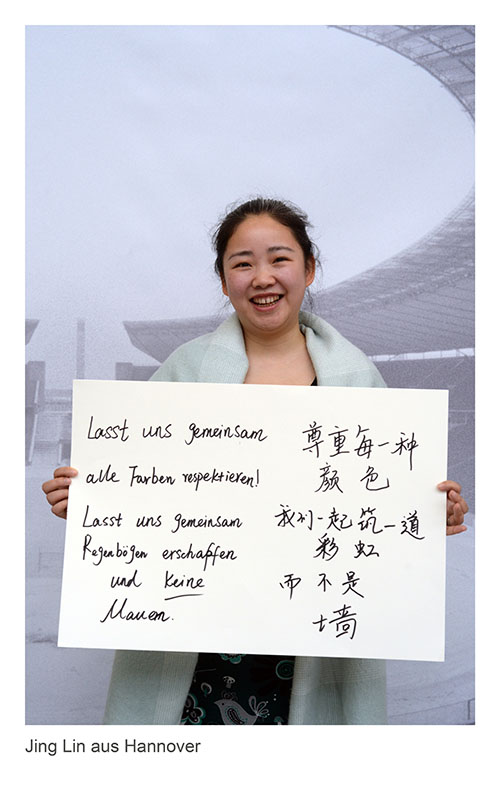 Lasst uns gemeinsam
alle Farben respektieren!
Lasst uns gemeinsam
Regenbögen erschaffen
und keine
Mauern.
尊重每一种
颜色
我们一起筑一道
彩虹
而不是
墙
Jing Lin aus Hannover